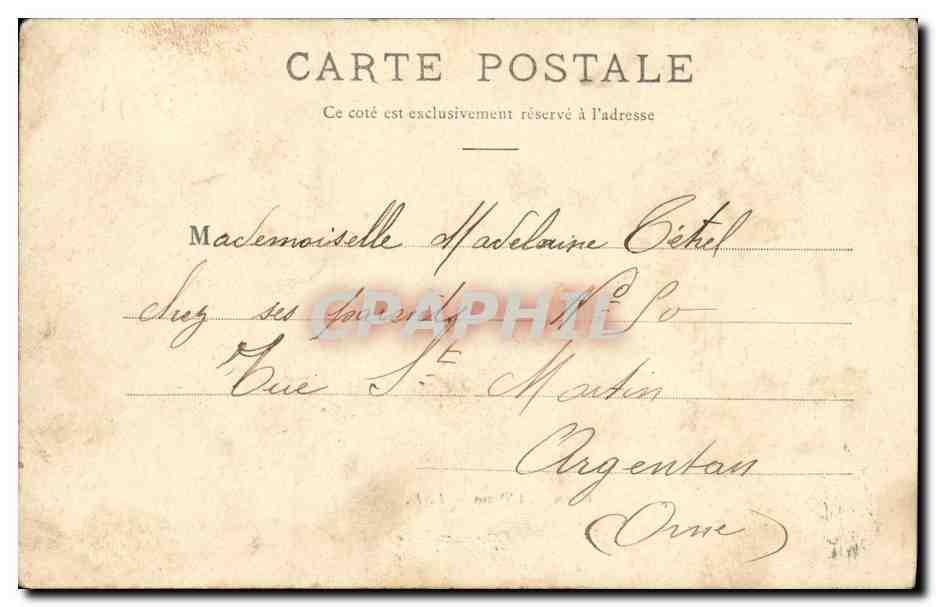 CARTE POSTALE
Ce coté est exclusivement réservé à l'adresse
Mademoiselle Madelaine Tétrel
chez ses parents Nº 50
Rue St Martin
Argentan
(Orne)
CPAPHIL